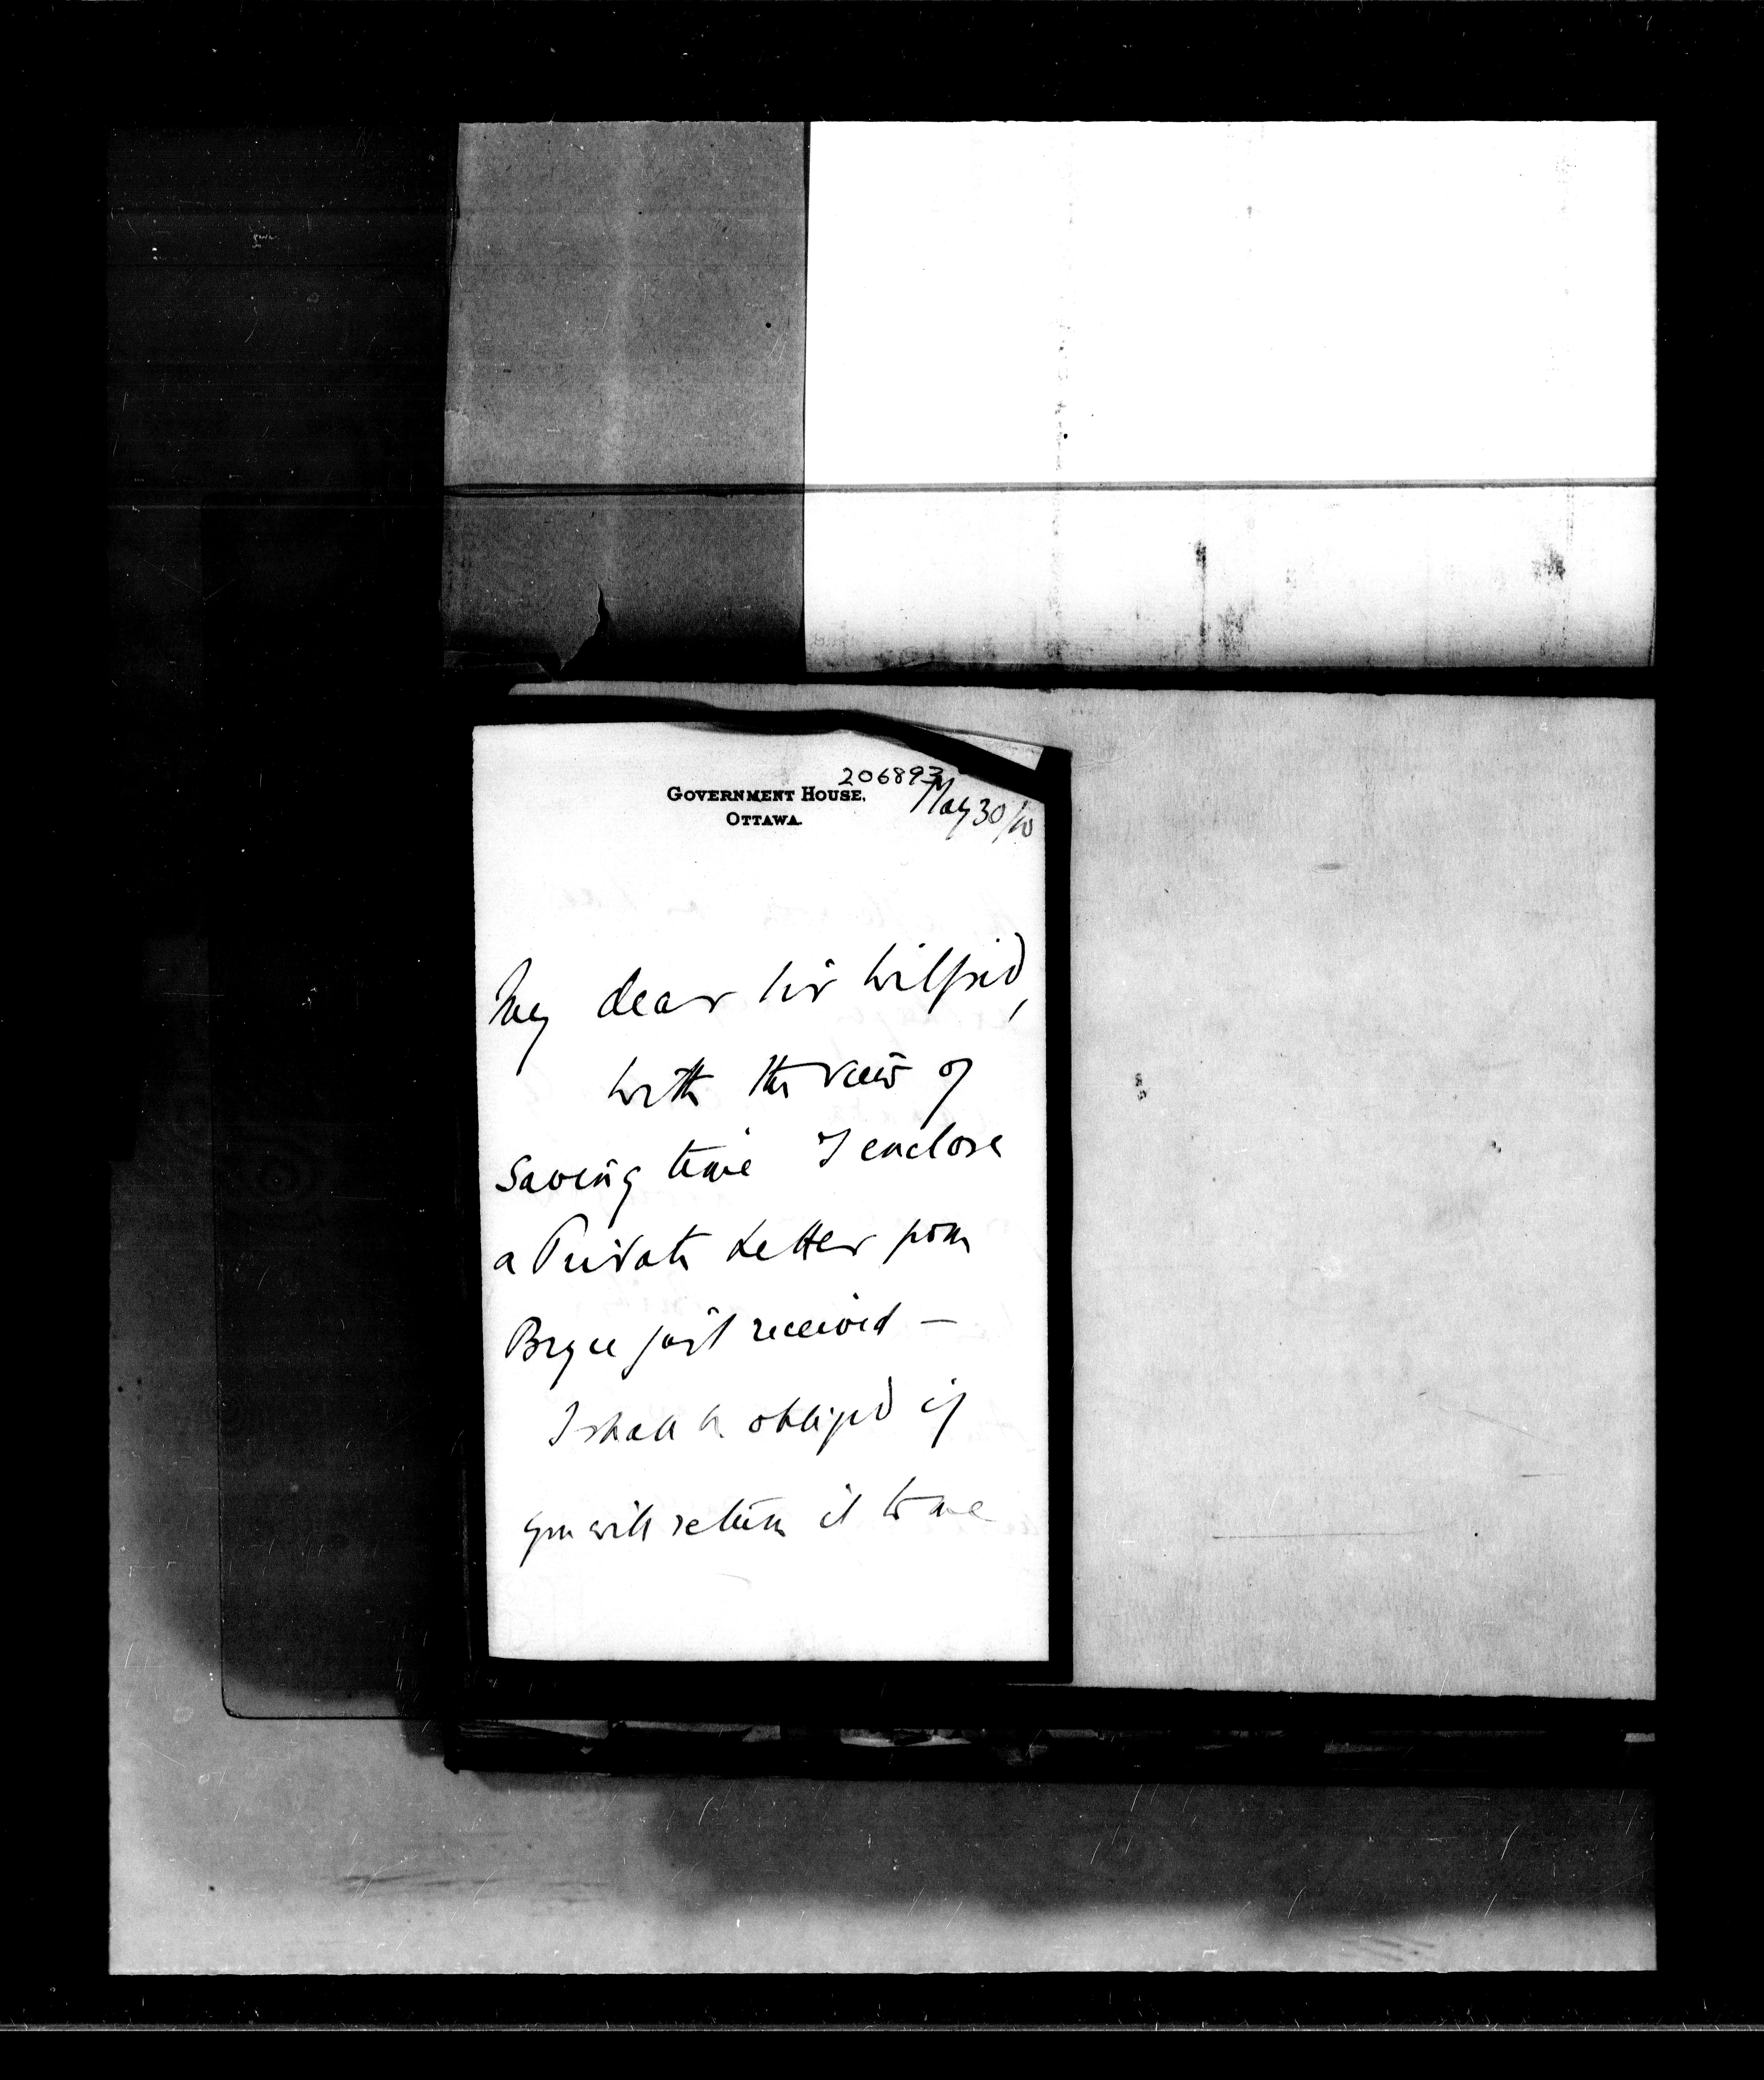 206893
GOVERNMENT HOUSE,
OTTAWA.
May 30/10
My dear Sir Wilfrid,
With the view of
saving time I enclose
a Private Letter from
Bryce just received —
I shall be obliged if
you will return it to me